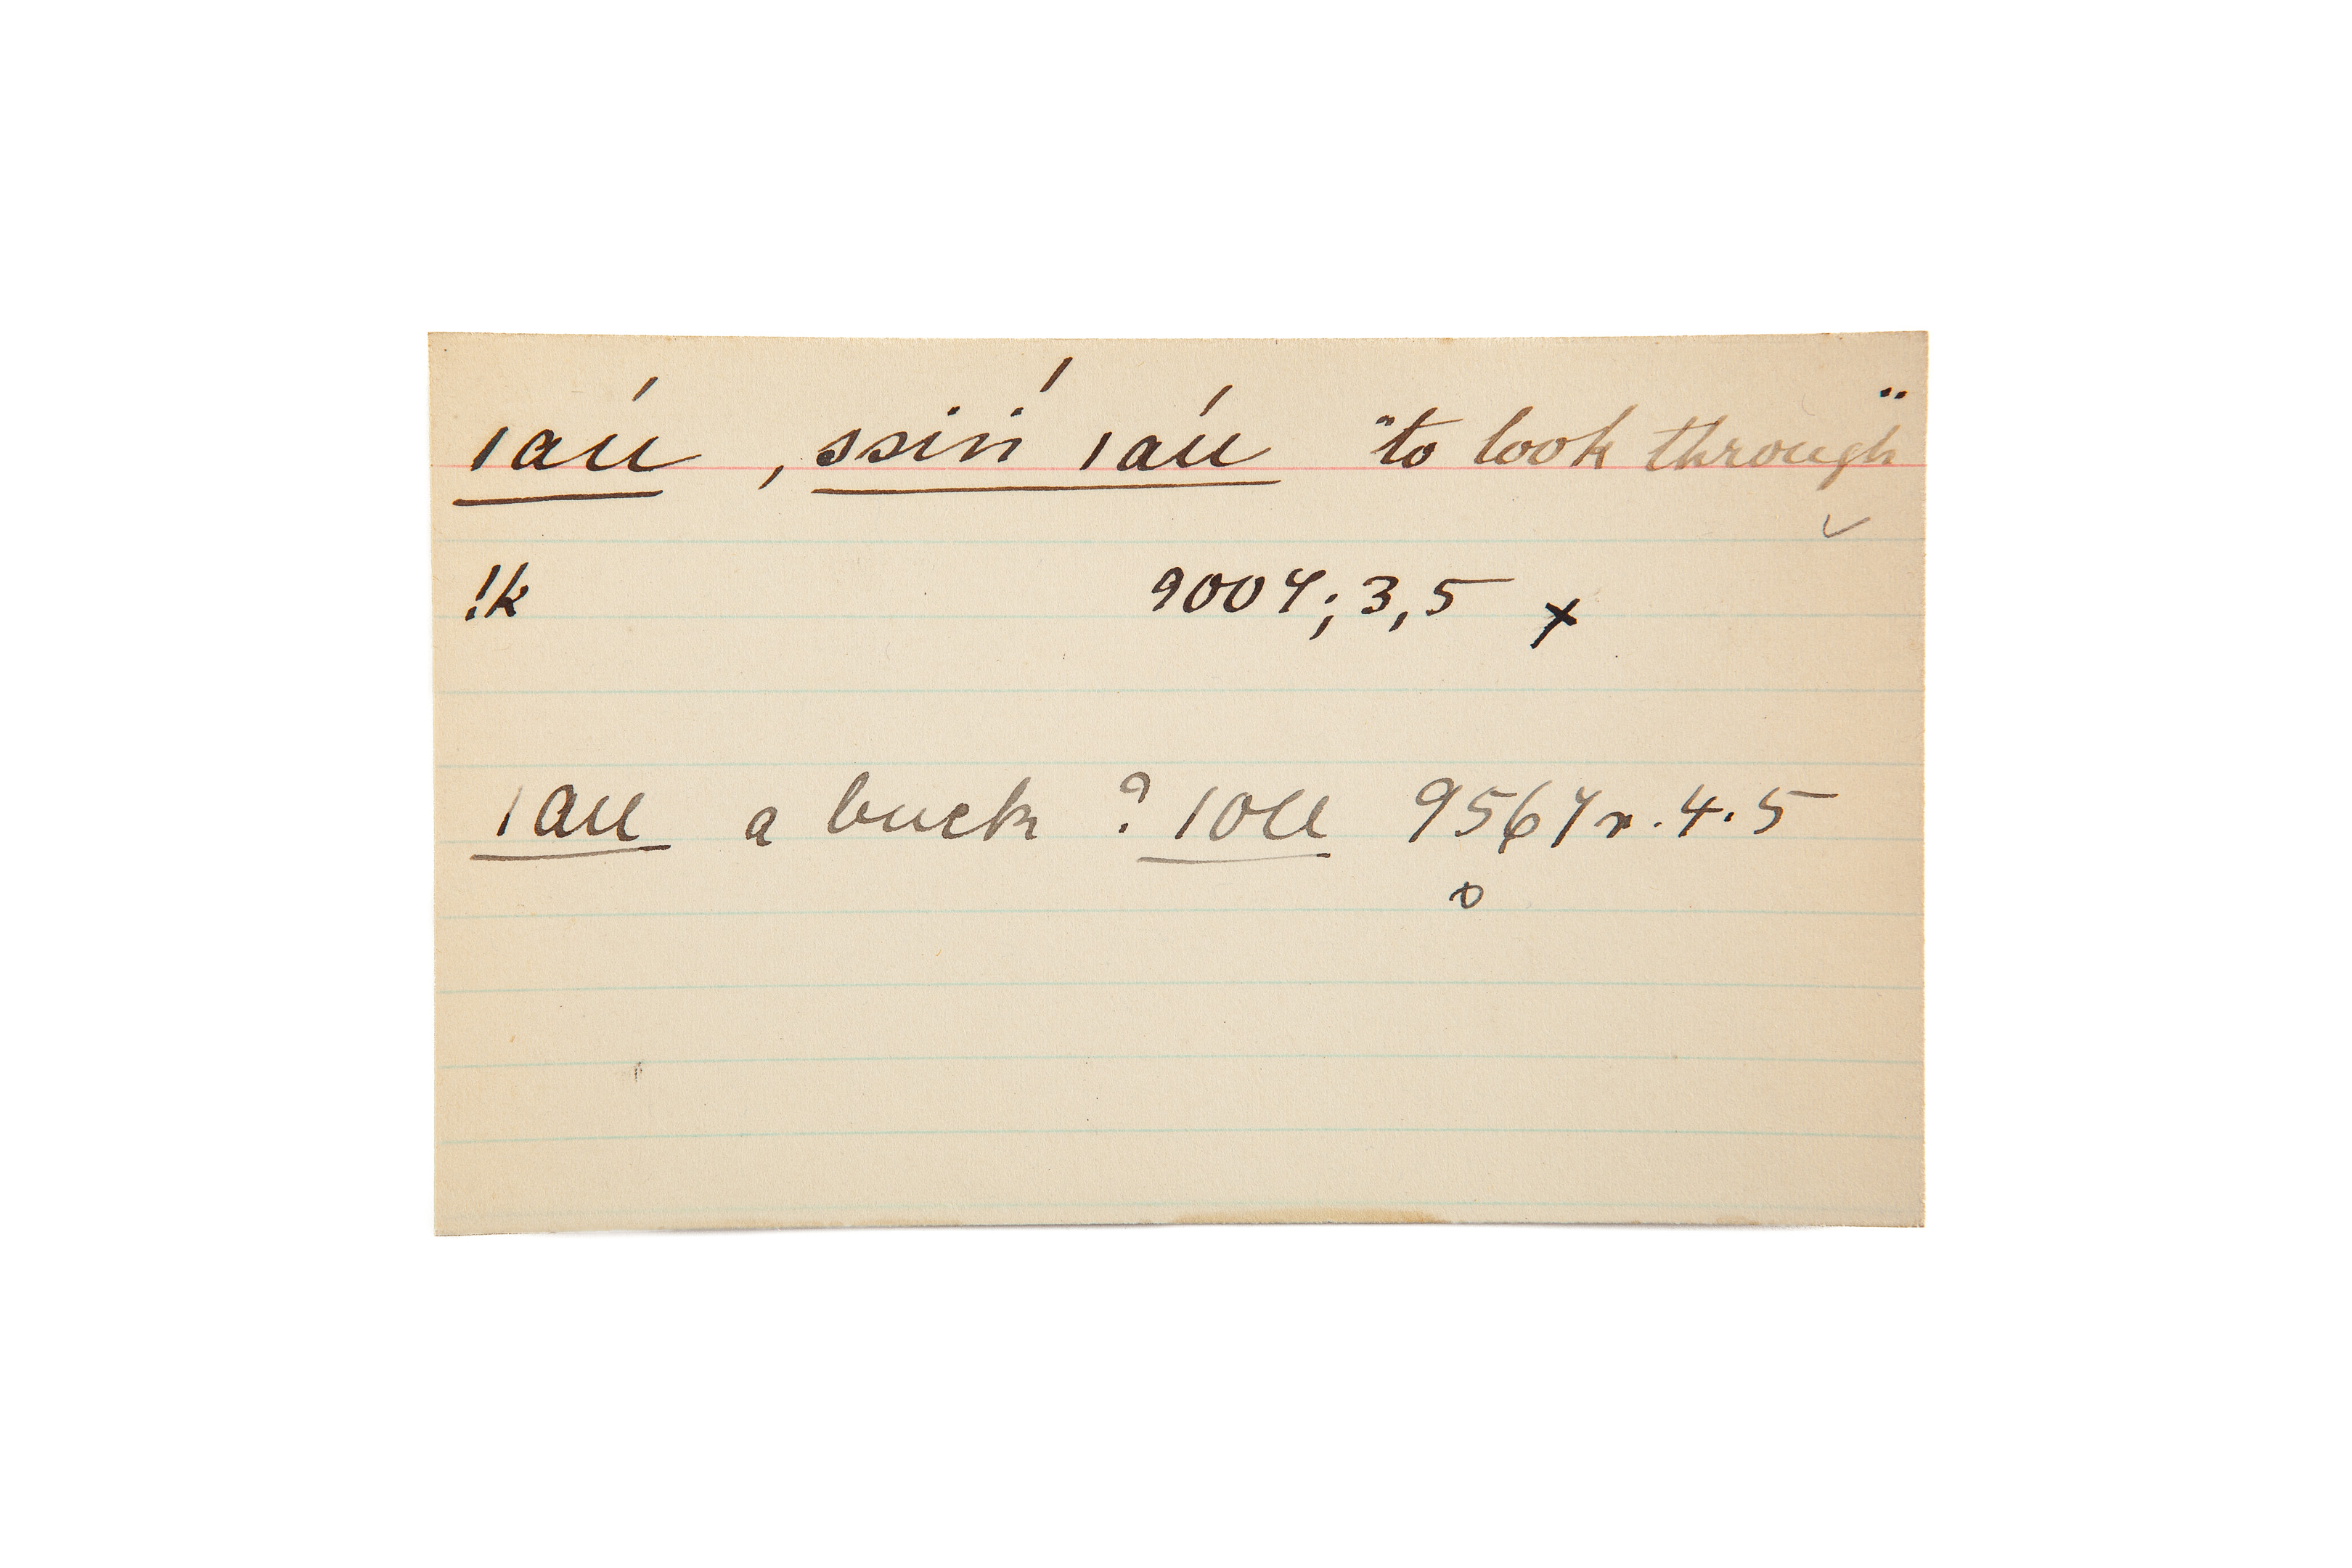 ǀaú , ssiń ǀaú "to look through"
!k 9004; 3,5 x
ǀau a buck ? ǀou 9564r. 4. 5